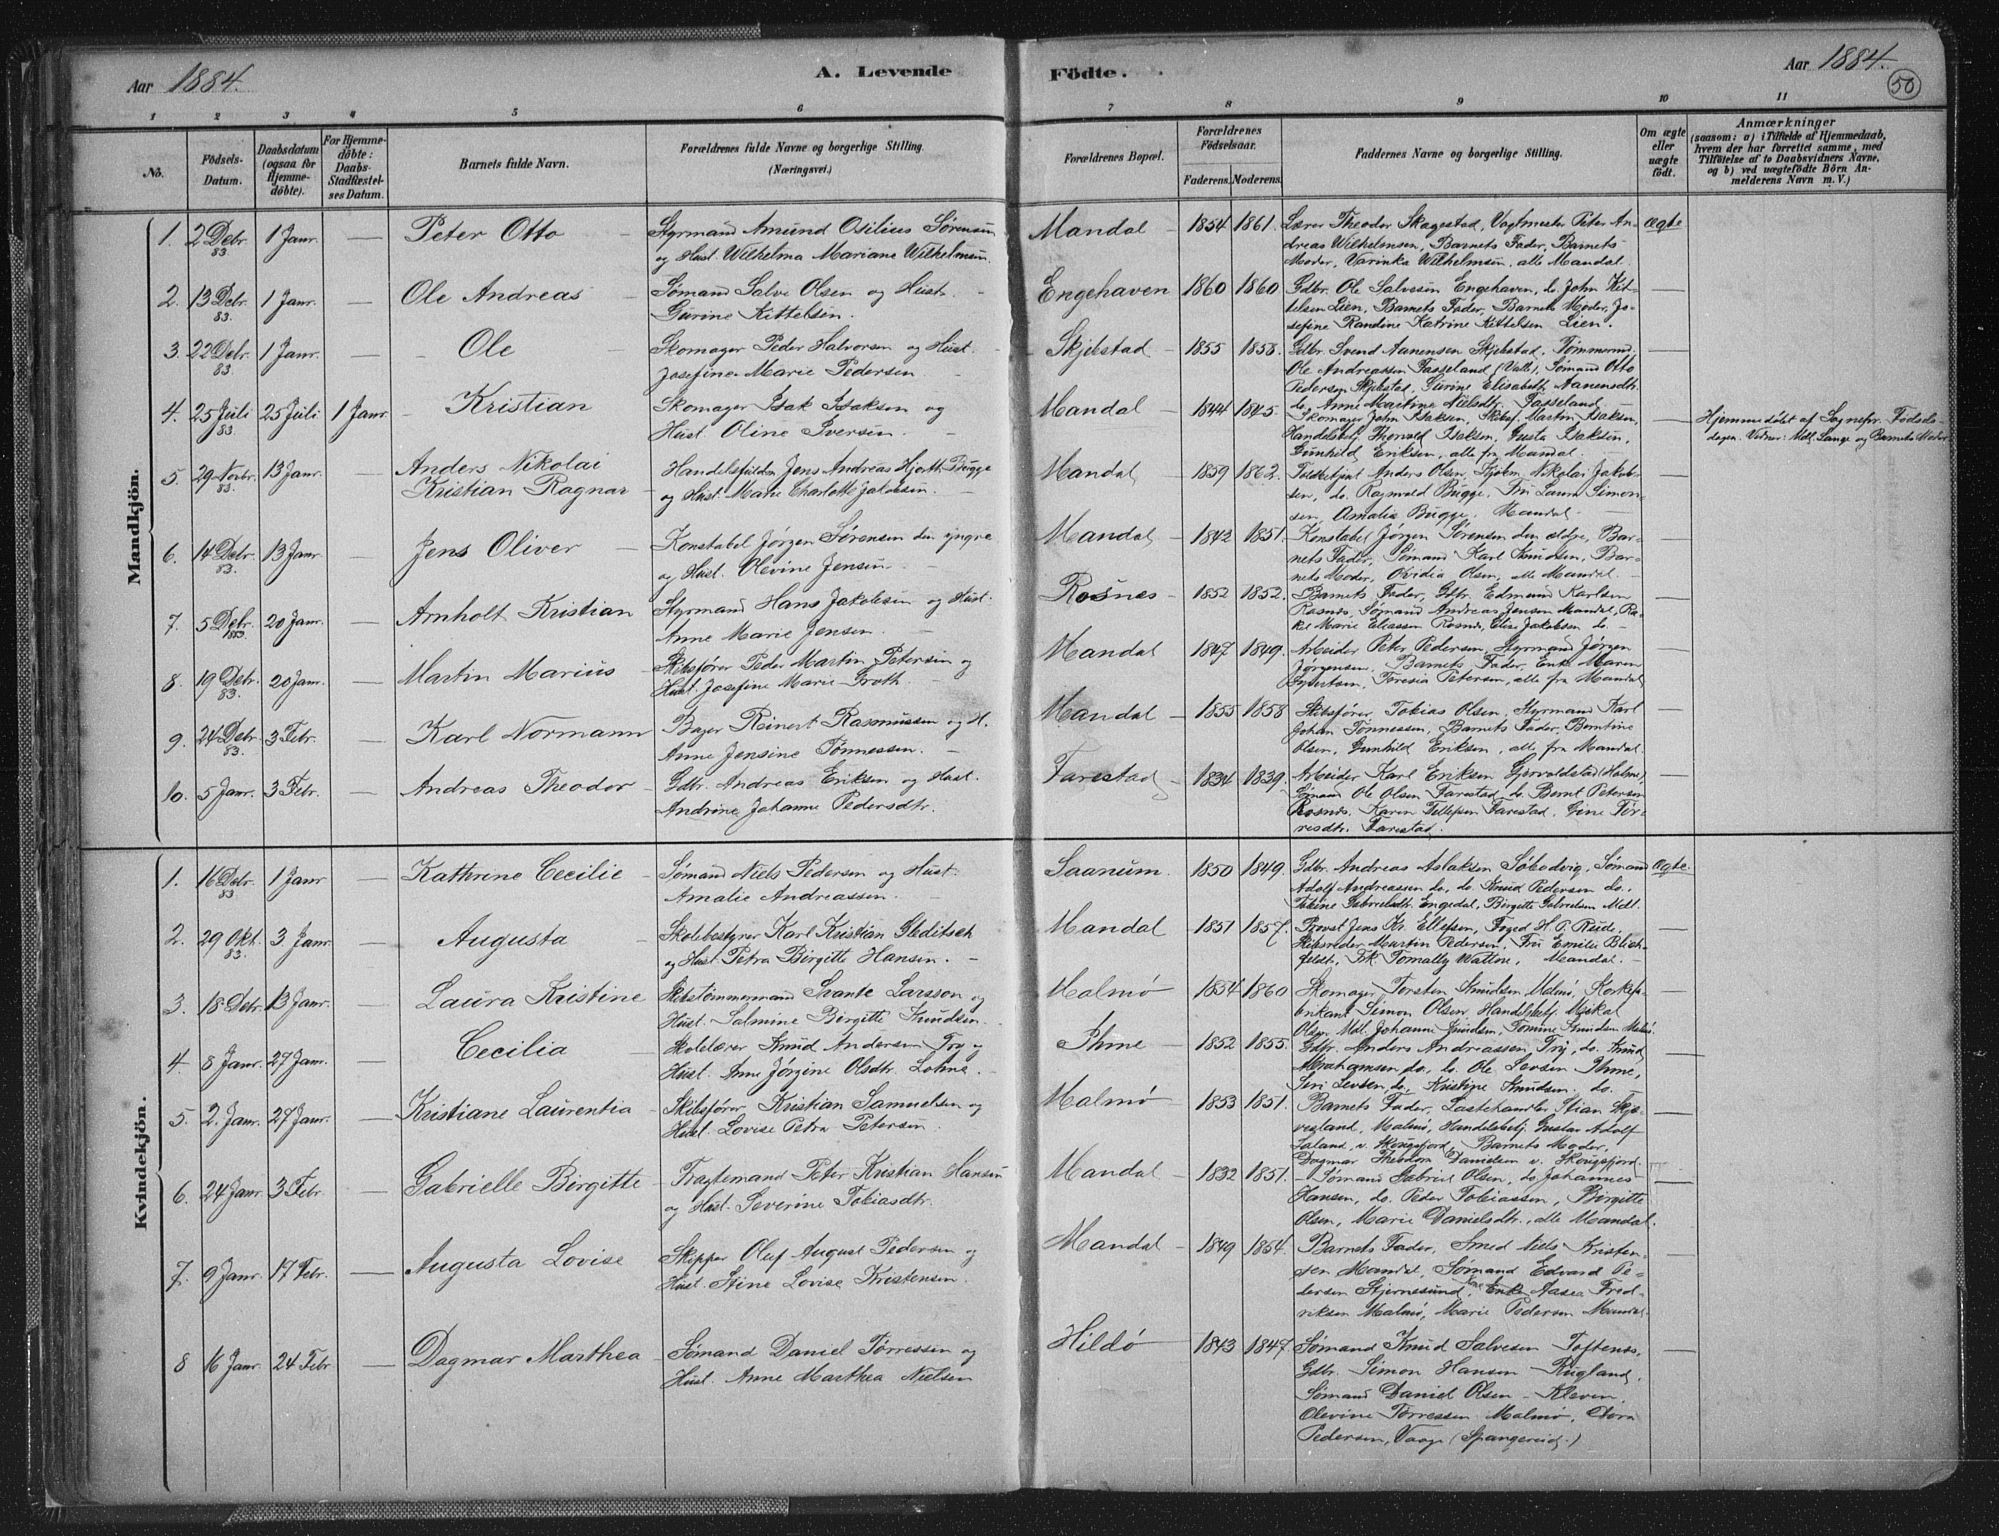 Aar 1884.
A. Levende
Födte.
Aar 1884.
50
1 2 3 4 5 6 7 8 9 10 11
No.
Födsels-
Datum.
Daabsdatum
(ogsaa for
Hjemme-
döbte).
For Hjemme-
döbte:
Daabs-
Stadfæstel-
ses Datum.
Barnets fulde Navn.
Forældrenes fulde Navne og borgerlige Stilling.
(Næringsvei.)
Forældrenes Bopæl.
Forældrenes
Födselsaar.
Faderens. Moderens.
Faddernes Navne og borgerlige Stilling.
Om ægte
eller
uægte
födt.
Anmærkninger
(saasom: a) i Tilfælde af Hjemmedaab,
hvem der har forrettet samme, med
Tilföielse af to Daabsvidners Navne,
og b) ved uægtefödte Börn An-
melderens Navn m. V.)
Mandkjön.
1. 2 Debr. 83. 1 Janr. — Peter Otto — Styrmand Amund Osilius Sørensen
og Hust. Wilhelma Mariane Wilhelmsen.
Mandal — 1854 1861. Lærer Theodor Skagestad, Vagtmester Peter An-
dreas Wilhelmsen, Barnets Fader, Barnets
Moder, Varinka Wilhelmsen, alle Mandal.
Ægte
2. 13 Debr. 83. 1 Janr. — Ole Andreas — Sømand Salve Olsen og Hustr.
Gurine Kittelsen.
Engehaven 1860 1860 Gdbr. Ole Salvesen Engehaven, do. John Kit-
telsen Lien, Barnets Fader, Barnets Moder, Jo-
sefine Randine Katrine Kittelsen Lien.
3. 22 Debr. 83 1 Janr. — Ole — Skomager Peder Halvorsen og Hust.
Josefine Marie Pedersen —
Skjebstad — 1855 1858. Gdbr. Svend Aanensen Skjebstad, Tømmermd.
Ole Andreassen Fasseland (Valle), Sømand Otto
Pedersen Skjebstad, Gurine Elisabeth Aanensdtr.
do. Anne Martine Nielsdtr. Fasseland.
4. 25 Juli 83 25 Juli 1 Janr. — Kristian — Skomager Isak Isaksen og
Hust. Oline Iversen. —
Mandal — 1844 1845. Skomager John Isaksen, Skibsf. Martin Isaksen,
Handelsbetj. Thorvald Isaksen, Gusta Isaksen,
Gunhild Eriksen, alle fra Mandal.
Hjemmedøbt af Sognepr. Fødsels-
dagen. Vidner: Mdl. Lange og Barnets Moder
5. 29 Novbr. 83. 13 Janr. — Anders Nikolai
Kristian Ragnar — Handelsfuldm. Jens Andreas Hjorth Bugge
og Hust. Marie Charlotte Jakobsen. —
Mandal — 1859 1862. Toldbetjent Anders Olsen, Kjøbm. Nikolai Jakob-
sen, do. Ragnvald Bugge, Fru Laura Simon-
sen, Amalia Bugge. Mandal. —
6. 14 Debr. 83. 13 Janr — Jens Oliver — Konstabel Jørgen Sørensen den yngre
og Hust. Olevine Jensen. —
Mandal — 1842 1851. Konstabel Jørgen Sørensen den ældre, Bar-
nets Fader, Sømand Karl Knudsen, Bar-
nets Moder, Ovidia Olsen, alle Mandal. —
7. 5 Debr. 1883. 20 Janr. — Arnholt Kristian Styrmand Hans Jakobsen og Hust.
Anne Marie Jensen. —
Rosnes — 1852 1852. Barnets Fader, Gdbr. Edmund Karlsen
Rosnes, Sømand Andreas Jensen Mandal, Ra-
kel Marie Eliassen Rosnes, Elise Jakobsen do. —
8. 19 Debr. 83. 20 Janr. — Martin Marius — Skibsfører Peder Martin Petersen og
Hust. Josefine Marie Groth. —
Mandal — 1847 1849. Arbeider Peter Pedersen, Styrmand Jørgen
Jørgensen, Barnets Fader, Enke Maren
Syvertsen, Teresia Petersen, alle fra Mandal
9. 24 Debr. 83 3 Febr. — Karl Normann — Bager Reinert Rasmussen og H.
Anne Jensine Tønnessen. —
Mandal — 1855 1858 Skibsfører Tobias Olsen, Styrmand Karl
Johan Tønnessen, Barnets Fader, Berntine
Olsen, Gunhild Eriksen, alle fra Mandal.
10. 5 Janr. 3 Febr. — Andreas Theodor — Gdbr. Andreas Eriksen og Hust.
Andrine Johanne Pedersdtr.
Farestad — 1834 1839. Arbeider Karl Eriksen Gjervoldstad (Holme),
Sømand Ole Olsen Farestad, do. Bernt Petersen
Rosnes, Karen Tellefsen Farestad, Gine Tør-
resdtr. Farestad.
Kvindekjön.
1. 16 Debr. 83 1 Janr — Kathrine Cecilie — Sømand Niels Pedersen og Hust.
Amalie Andreassen. —
Saanum. — 1850 1849. Gdbr. Andreas Aslaksen Søbodvig, Sømand
Adolf Andreassen do., do. Knud Pedersen do.
Tobine Gabrielsdtr. Engedal, Birgitte Gabrielsen Mdl.
Ægte.
2. 29 Okt. 83 3 Janr. — Augusta — Skolebestyrer Karl Kristian Gleditsch
og Hust. Petra Birgitte Hansen. —
Mandal — 1851 1857. Provst Jens Kr. Ellefsen, Foged H. P. Reid,
Skibsreder Martin Pedersen, Fru Emilie Blich-
feldt, Frk. Tomally Wattne, Mandal. —
3. 18 Debr. 13 Janr. — Laura Kristine — Skibstømmermand Svante Larsson og
Hust. Salmine Birgitte Knudsen.
Malmø — 1834 1860 Skomager Torsten Knudsen Malmø, Korkefa-
brikant Simon Olsen, Handelsbetj. Mikal
Olsen Mdl. Johanne Knudsen, Tomine Knudsen Malmø.
4 8 Janr. 27 Janr. — Cecilia — Skolelærer Knud Andersen Try og
Hust. Anne Jørgine Olsdtr. Lohne. —
Ihme — 1852 1855. Gdbr. Anders Andreassen Try, do. Knud
Abrahamsen do., do. Ole Sevsen Ihme,
Seri Sevsen do., Kristine Knudsen. do. —
5 2. Janr. 27 Janr. — Kristiane Laurentia — Skibsfører Kristian Samuelsen og
Hust. Lovise Petra Petersen. —
Malmø — 1853 1851. Barnets Fader, Lastehandler Stian Skje-
vesland, Malmø, Handelsbetj. Gustav Adolf
Saland v. Skougsfjord, Barnets Moder,
Dagmar Theodora Danielsen v. Skougsfjord.
6 24 Janr 3 Febr. — Gabrielle Birgitte — Fragtemand Peter Kristian Hansen
og Hust. Severine Tobiasdtr.
Mandal — 1832 1851. — Sømand Gabriel Olsen, do Johannes
Hansen, do. Peder Tobiassen, Birgitte
Olsen, Marie Danielsdtr., alle Mandal.
7. 9 Janr. 17 Febr. — Augusta Lovise — Skipper Oluf August Pedersen og
Hust. Stine Lovise Kristensen.
Mandal — 1849 1854. Barnets Fader, Smed Niels Kristen-
sen Mandal, Sømand Edvard Pe-
dersen Stjernesund, Enke Aasea Fred-
riksen Malmø, Marie Pedersen Mandal
8 16 Janr. 24 Febr. — Dagmar Marthea — Sømand Daniel Tørressen og
Hust. Anne Marthea Nielsen
Hildø — 1843 1847. Sømand Knud Salvesen Toftenes,
Gdbr. Simon Hansen Rugland.
Sømand Daniel Olsen — Kleven.
Olevine Tørressen Malmø, Dora
Pedersen, Vaage (Spangereid.)